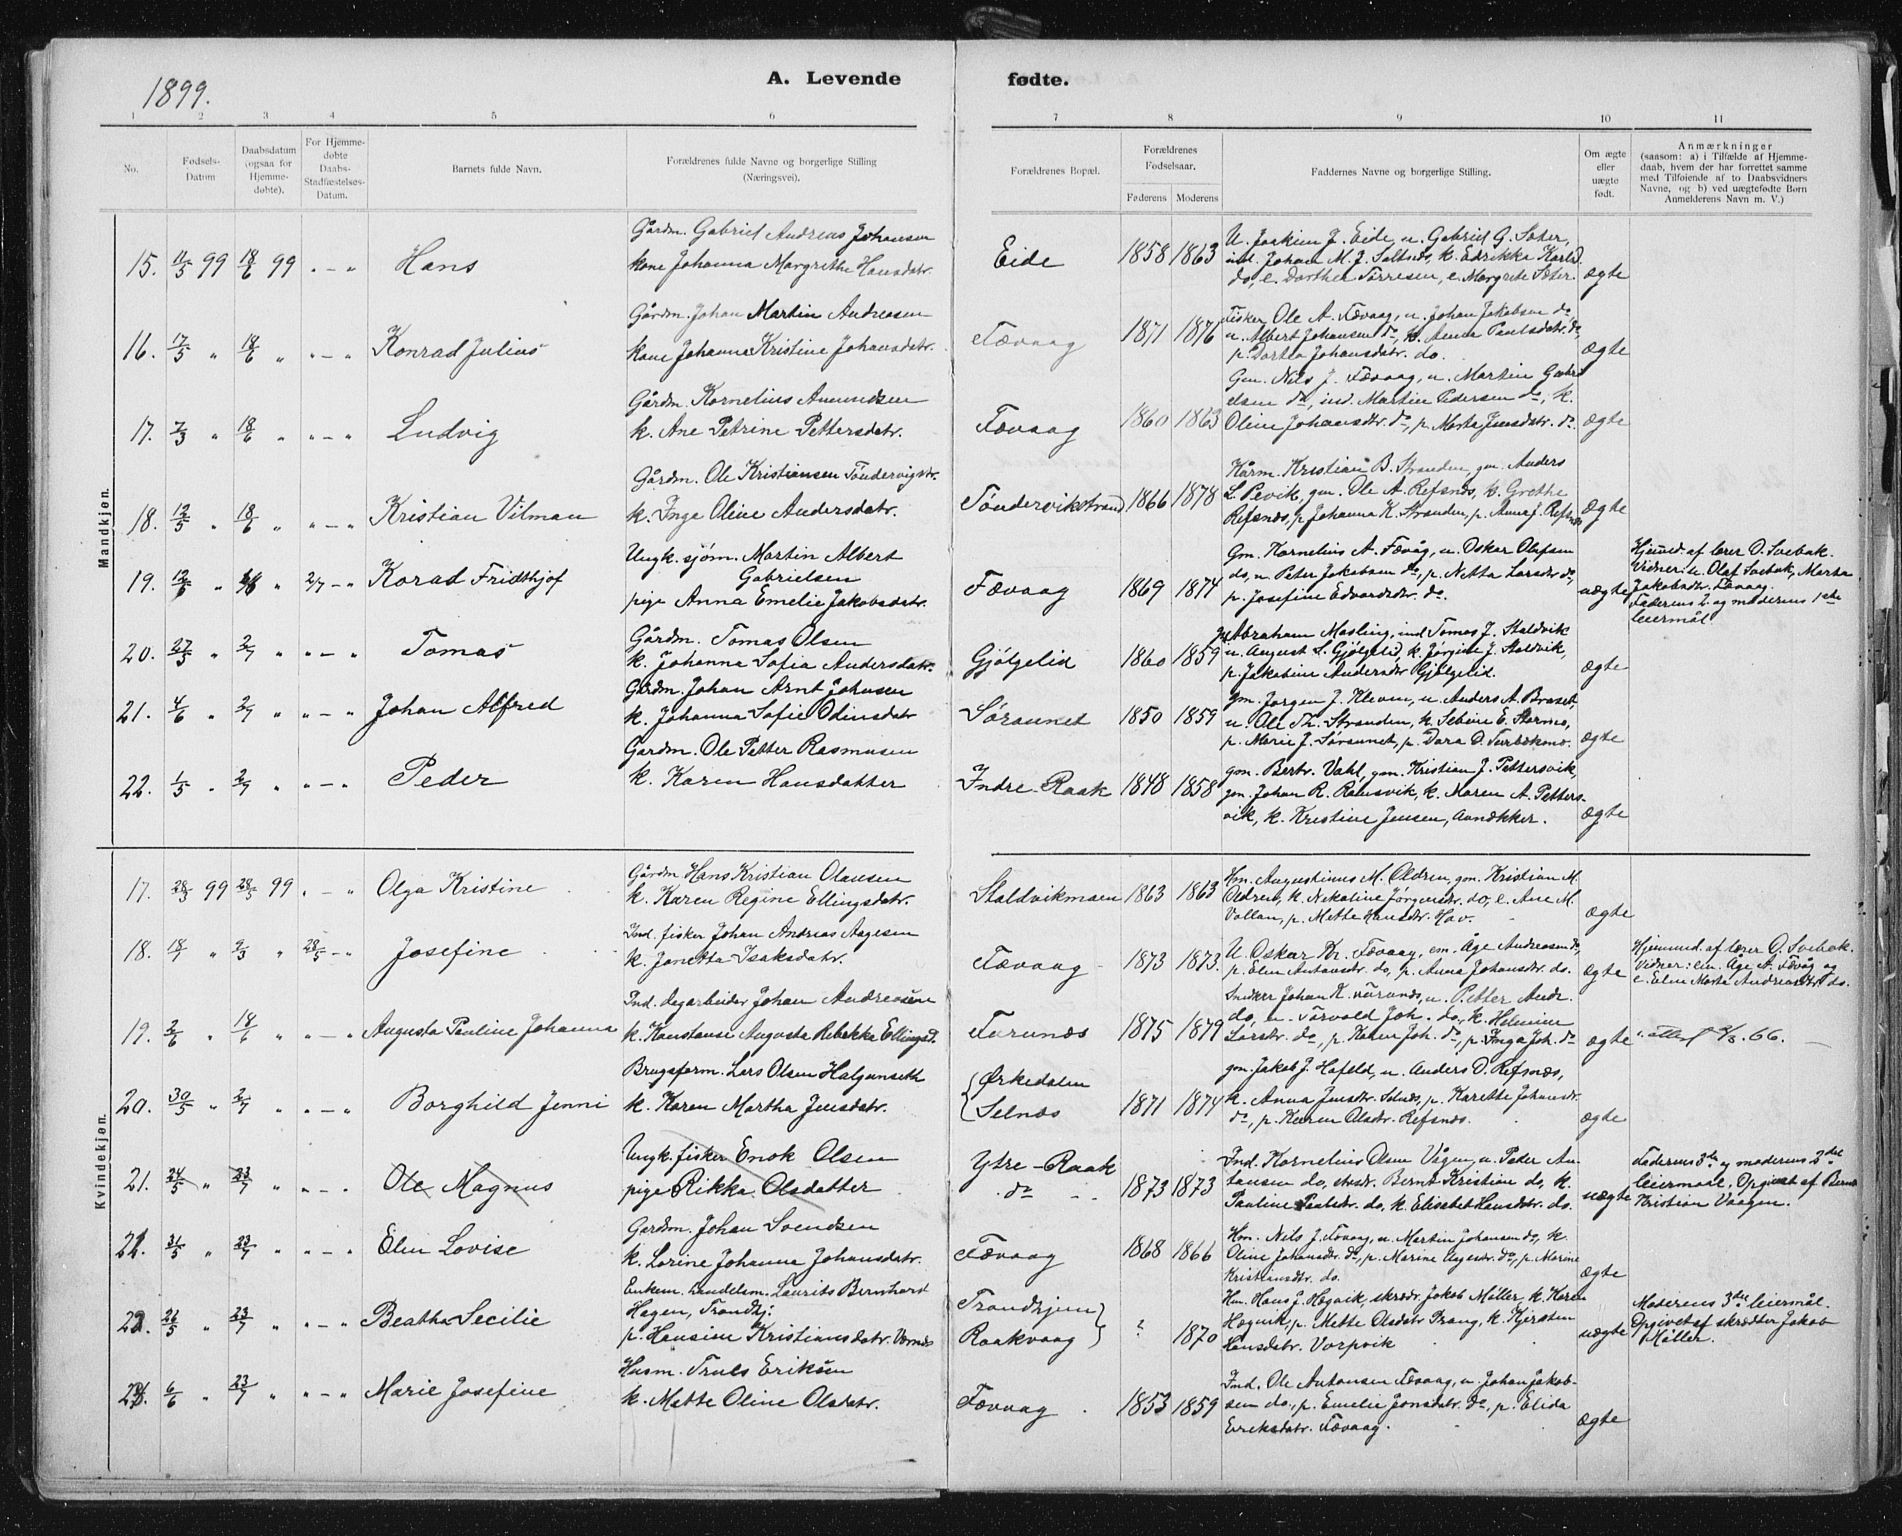 1899.
A. Levende fødte.
1 2 3 4 5 6 7 8 9 10 11
No.
Fødsels-Datum
Daabsdatum (ogsaa for Hjemmedøbte).
For Hjemmedøbte Daabs-Stadfæstelses-Datum.
Barnets fulde Navn.
Forældrenes fulde Navne og borgerlige Stilling (Næringsvei).
Forældrenes Bopæl.
Forældrenes Fødselsaar.
Faderens Moderens
Faddernes Navne og borgerlige Stilling.
Om ægte eller uægte født.
Anmærkninger
(saasom: a) i Tilfælde af Hjemmedaab, hvem der har forrettet samme med Tilføiende af to Daabsvidners Navne, og b) ved uægtefødte Børn Anmelderens Navn m. V.)
Mandkjøn.
15. 11/5 99 18/6 99 " - " Hans
Gårdm. Gabriel Andreas Johansen
kone Johanna Margrethe Hansdatr.
Eide 1858 1863
U. Joakim J. Eide, u. Gabriel G. Sæter,
ind. Johan M. J. Seltnes, k. Edrikka Karlsd.
do, e. Dorthea Torresen, e. Margrete Sæter.
ægte
16. 17/5 " 18/6 " " - " Konrad Julius
Gårdm. Johan Martin Andreasen
kone Johanna Kristine Johansdatr.
Fævaag 1871 1876
Fisker Ole A. Fævaag, u. Johan Jakobsen do
u. Albert Johansen do, k. Anna Paulsdatr. do,
p. Dortea Johansdatr. do.
ægte
17. 7/3 " 18/6 " " - " Ludvig
Gårdm. Kornelius Amundsen
k. Ane Petrine Pettersdatr.
Fævaag 1860 1863
Gm. Nils J. Fævaag, u. Martin Gabri
elsen do, ind. Martin Pedersen do, k.
Oline Johansdtr. do, p. Marta Jensdatr. do.
ægte
18. 12/5 " 18/6 " " - " Kristian Vilman
Gårdm. Ole Kristiansen Tøndervigstr.
k. Inga Oline Andersdatr.
Tøndervikstrand 1866 1878
Kårm. Kristian B. Stranden, gm. Anders
L. Pevik, gm. Ole A. Refsnes, k. Grethe
Refsnes, p. Johanna K. Stranden, p. Anna J. Refsnes
ægte
19. 12/5 " " 2/7 - " Korad Fridthjof
Ungk. sjøm. Martin Albert
Gabrielsen
pige Anna Emelie Jakobsdatr.
Fævaag 1869 1874
Gm. Kornelius A. Fævåg, u. Oskar Olafsen
do, u. Peter Jakobsen do, p. Netta Larsdtr do,
p. Josefine Edvardsdtr. do.
uægte
Hjemd. af lærer O. Svebak.
Vidner: u. Olaf Svebak, Marta
Jakobsdtr. Fævaag.
Faderens 2. og moderens 1ste
leiermål
20. 27/5 " 2/7 " " - " Tomas
Gårdm. Tomas Olsen
k. Johanna Sofia Andersdatr.
Gjølgelid 1860 1859
Abraham Masling, ind. Tomas J. Staldvik
u. August L. Gjølgelid, k. Jørgine J. Staldvik,
p. Jakobine Andersdtr Gjølgelid.
ægte
21. 4/6 " 2/7 " " - " Johan Alfred
Gårdm. Johan Arnt Johnsen
k. Johanna Sofie Odinsdatr
Søraunet 1850 1859
gm. Jørgen J. Kleven, u. Anders A. Braset,
u. Ole Th. Stranden, k. Sebine E. Stormo,
p. Marie J. Søraunet, p. Dara D. Surbækmo.
ægte
22. 1/5 " 2/7 " " - " Peder
Gårdm. Ole Petter Rasmusen
k. Karen Hansdatter
Indre-Raak 1848 1858
gm. Bertr. Vahl, gm. Kristian J. Pettersvik,
gm. Johan R. Ramsvik, k. Maren A. Petters-
vik, k. Kristine Jensen, Avnækker.
ægte
Kvindekjøn.
17. 28/3 99 28/5 99 " - " Olga Kristine
Gårdm Hans Kristian Olausen
k. Karen Regine Ellingsdatr.
Staldvikmoen 1863 1863
Hm. Augustinus M. Oldren, gm. Kristian M.
Oldren, k. Nekoline Jørgensdr. do, e. Ane M.
Vollan, p. Mette Hansdtr. Hov.
ægte
18. 18/1 " 2/3 " 28/5 - " Josefine
Ind. fisker Johan Andreas Aagesen
k. Janetta Isaksdatr.
Fævaag 1873 1873.
U. Oskar Kr. Fævaag, em. Åge Andreasen do,
p. Elen Antonsdtr. do, p. Anna Johansdtr. do.
ægte
Hjemmd. af lærer O. Svebak.
Vidner: em. Åge A. Fævåg og
e. Elen Marta Andreasdtr do.
19. 2/6 " 18/6 " " - " Augusta Pauline Johanna
Ind. dagarbeider Johan Andreasen
k. Konstanse Augusta Rebekka Ellingsd.
Furunes 1875 1879
Snedker Johan K. Furunes, u. Petter Andr.
do, u. Torvald Joh. do, k. Helmine
Larsdr. do, p. Karen Joh. do, p. Inga Joh. do
ægte
attest 66.
20. 30/5 " 2/7 " " - " Borghild Jenni
Brugsform. Lars Olsen Halgunseth
k. Karen Martha Jensdatr.
Ørkedalen
Selnæs 1871 1874
gm. Jakob J. Hafeld, u. Anders D. Refsnæs,
k. Anna Jensdtr. Selnæs, p. Karette Johansdr.
do, p. Karen Olsdtr. Refsnæs.
ægte
21. 24/5 " 23/7 " " - " Ole Magnus
Ungk. fisker Enok Olsen
pige Rikka Olsdatter
Ytre-Raak
do 1873 1873
Ind. Kornelius Olsen Vågen, u. Peder An-
tonsen do, Bernt Kristine do, k.
Pauline Paulsdtr. do, k. Elisabet Hansdtr. do.
uægte
Faderens 3die og moderens 3die
leiermaal. Opgivet af Bernt
Kristian Vaagen.
22. 31/5 " 23/7 " " - " Elen Lovise
Gårdm. Johan Svendsen
k. Lorine Johanna Johansdatr.
Fævaag 1868 1866
Hm. Nils J. Fævaag, u. Martin Johansen do, k.
Oline Johansdtr. do, p. Marine Aagesdr. do, p. Marine
Kristiansdtr. do.
ægte
22. 26/5 " 23/7 " " - " Beatha Secilie
Enkem. handelsm. Laurits Bernhard
Hagen, Trondhj:
p. Hansine Kristiansdatr. Vornes
Trondhjem
Raakvaag ? 1870
Hm. Hans J. Høgvik, skræd. Jakob Møller, k. Karen
Høgvik, p. Mette Olsdatr Prang, k. Kjersten
Hansdatr. Vorpvik
uægte
Moderens 3die leiermål.
Opgivet af skrædder Jakob
Møller.
23. 6/6 " 23/7 " " - " Marie Josefine
Husm. Truls Eriksen
k. Mette Oline Olsdatr.
Fævaag 1853 1859
Ind. Ole Antonsen Fævaag, u. Johan Jakob-
sen do, p. Emelie Jonsdatr. do, p. Elida
Eriksdatr. Fævaag.
ægte